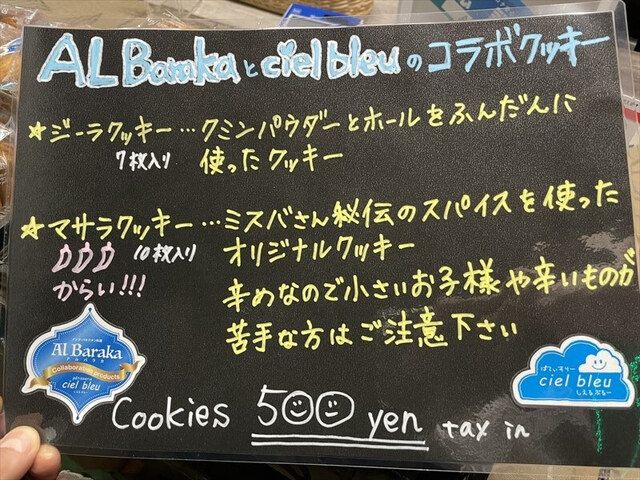 AL Barakaとciel bleuのコラボクッキー
★ジーラクッキー…クミンパウダーとホールをふんだんに
7枚入り 使ったクッキー
★マサラクッキー…ミスバさん秘伝のスパイスを使った
10枚入り オリジナルクッキー
からい!!! 辛めなので小さいお子様や辛いものが
苦手な方はご注意下さい
Al Baraka
アルバラカ
Collaboration products
ciel bleu
しえるぶるー
ぱてぃすりー
ciel bleu
しえるぶるー
Cookies 500 yen tax in